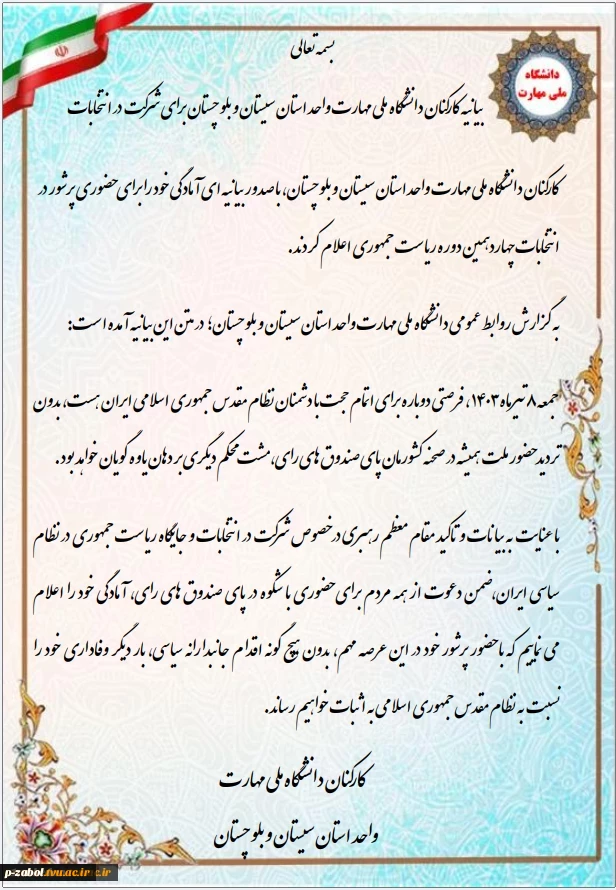 بسمه تعالی
دانشگاه
ملی مهارت
بیانیه کارکنان دانشگاه ملی مهارت واحد استان سیستان و بلوچستان برای شرکت در انتخابات
کارکنان دانشگاه ملی مهارت واحد استان سیستان و بلوچستان، با صدور بیانیه ای آمادگی خود را برای حضوری پرشور در
انتخابات چهاردهمین دوره ریاست جمهوری اعلام کردند.
به گزارش روابط عمومی دانشگاه ملی مهارت واحد استان سیستان و بلوچستان؛ در متن این بیانیه آمده است:
جمعه ۸ تیرماه ۱۴۰۳، فرصتی دوباره برای اتمام حجت با دشمنان نظام مقدس جمهوری اسلامی ایران هست، بدون
تردید حضور ملت همیشه در صحنه کشورمان پای صندوق های رای، مشت محکم دیگری بر دهان یاوه گویان خواهد بود.
با عنایت به بیانات و تاکید مقام معظم رهبری در خصوص شرکت در انتخابات و جایگاه ریاست جمهوری در نظام
سیاسی ایران، ضمن دعوت از همه مردم برای حضوری با شکوه در پای صندوق های رای، آمادگی خود را اعلام
می نماییم که با حضور پرشور خود در این عرصه مهم، بدون هیچ گونه اقدام جانبدارانه سیاسی، بار دیگر وفاداری خود را
نسبت به نظام مقدس جمهوری اسلامی به اثبات خواهیم رساند.
کارکنان دانشگاه ملی مهارت
واحد استان سیستان و بلوچستان